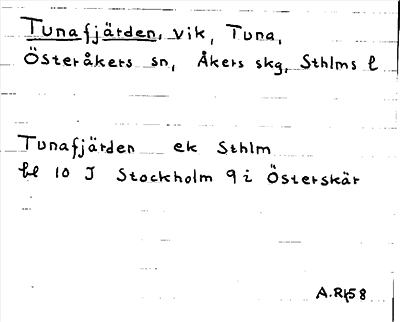 Tunafjärden, vik, Tuna,
Österåkers sn, Åkers skg, Sthlms l
Tunafjärden ek Sthlm
bl 10 J Stockholm 9 i Österskär
A.R. 58